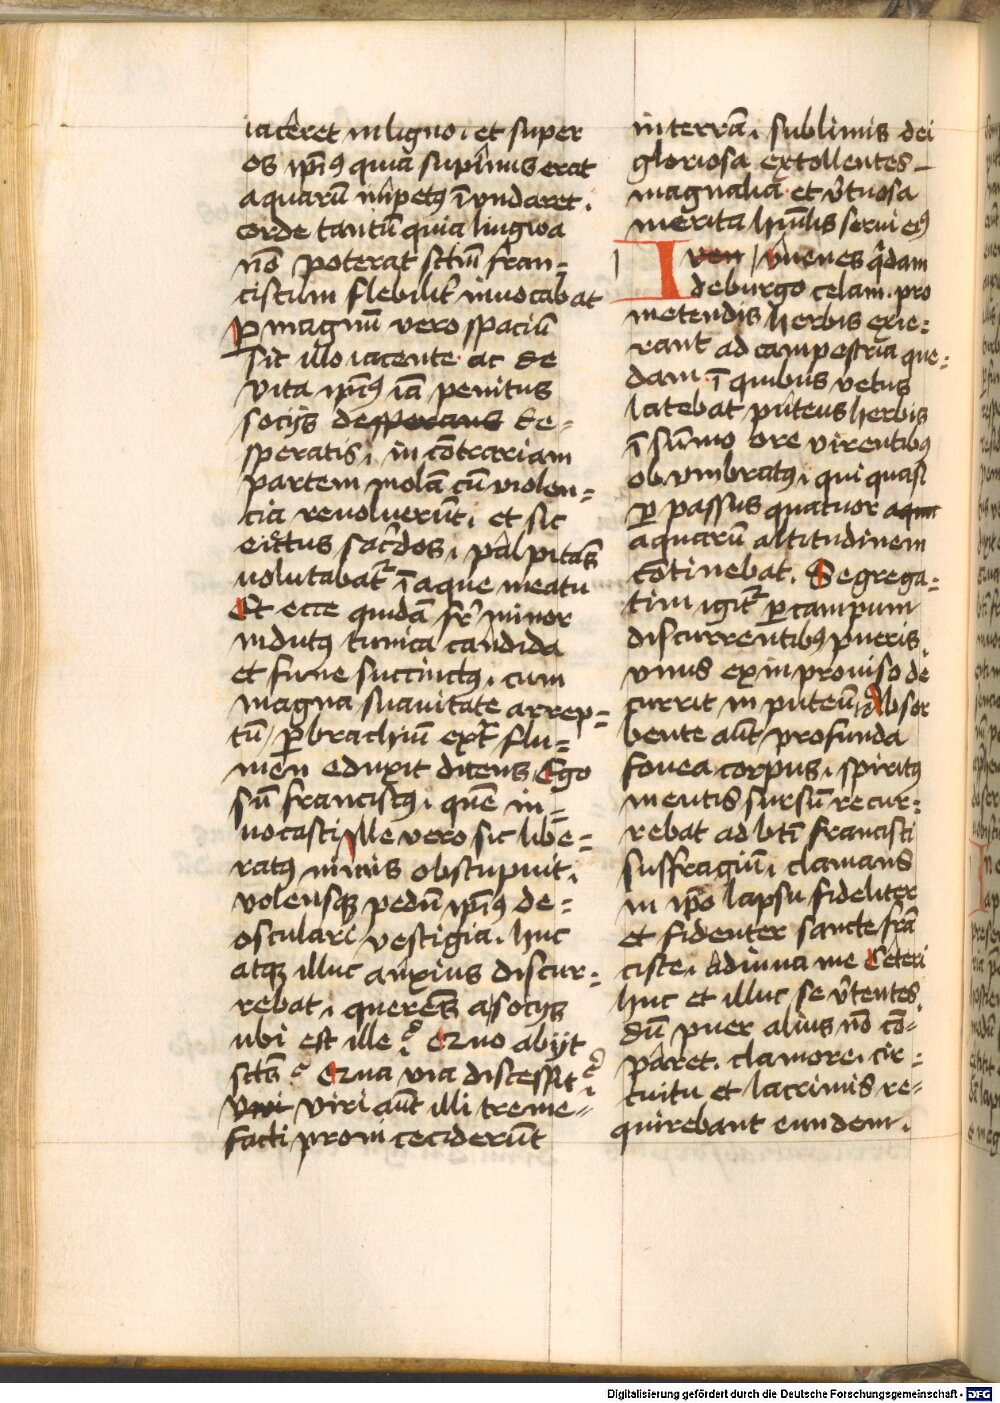 iaceret in ligno et super
os ip̅iꝰ quia supinus erat
aquaru̅ impetꝰ i̅undaret.
corde tantu̅ quia lingwa
no̅ poterat sctu̅ fran=
ciscum flebilit̾ inuocabat
ꝑ magnu̅ vero spaciu̅
sic illo iacente ac de
vita ip̅iꝰ ia̅ penitus
socijs desperans de=
speratis, in co̅trariam
partem mola̅ cu̅ violen=
cia reuoluerūt, et sic
eiectus sac̾dos, palpita̅s
uolutabat᷑ i̅ aque meatu
Et ecce quida̅ fr̅ minor
indutꝰ tunica candida
et fune succinctꝰ, cum
magna suauitate arrep=
tu̅ ꝑ brachiu̅ ext᷑ flu=
men eduxit dicens, Ego
su̅ franciscꝰ, que̅ in=
uocasti Ille vero sic libe=
ratꝰ nimis obstupuit,
volensqꝫ pedu̅ ip̅iꝰ de=
osculari vestigia, huc
atqꝫ illuc anxius discur=
rebat, quere̅s a socijs
ubi est ille? Quo abijt
sctu̅s? Qua via discessit?
viri au̅t illi treme=
facti proni ceciderūt
in terra̅, sublimis dei
gloriosa extollentes
magnalia et v̾tuosa
merita hu̅ilis serui eiꝰ
Iuven Iuuenes q̅dam
de burgo celam. pro
metendis herbis exie=
rant ad campestria que=
dam i̅ quibus vetus
latebat puteus herbis
i̅ su̅mo ore virentibꝰ
obumbratꝰ, qui quasi
ꝑ passus quatuor aqua
aquaru̅ altitudinem
co̅tinebat. Segrega=
tim igit᷑ ꝑ campum
discurrentibꝰ pueris
vnus ex inprouiso de
currit in puteu̅, Absor
bente au̅t profunda
fouea corpus, spiritꝰ
mentis sursu̅ recur=
rebat ad bti̅ francisci
suffragiu̅, clamans
in ip̅o lapsu fideliter
et fidenter sancte fra̅
cisce, adiuua me Ceteri
huc et illuc se v̾tentes
du̅ puer alius no̅ co̅=
paret, clamore, cir=
cuitu et lacrimis re=
quirebant eundem.
Digitalisierung gefördert durch die Deutsche Forschungsgemeinschaft - DFG